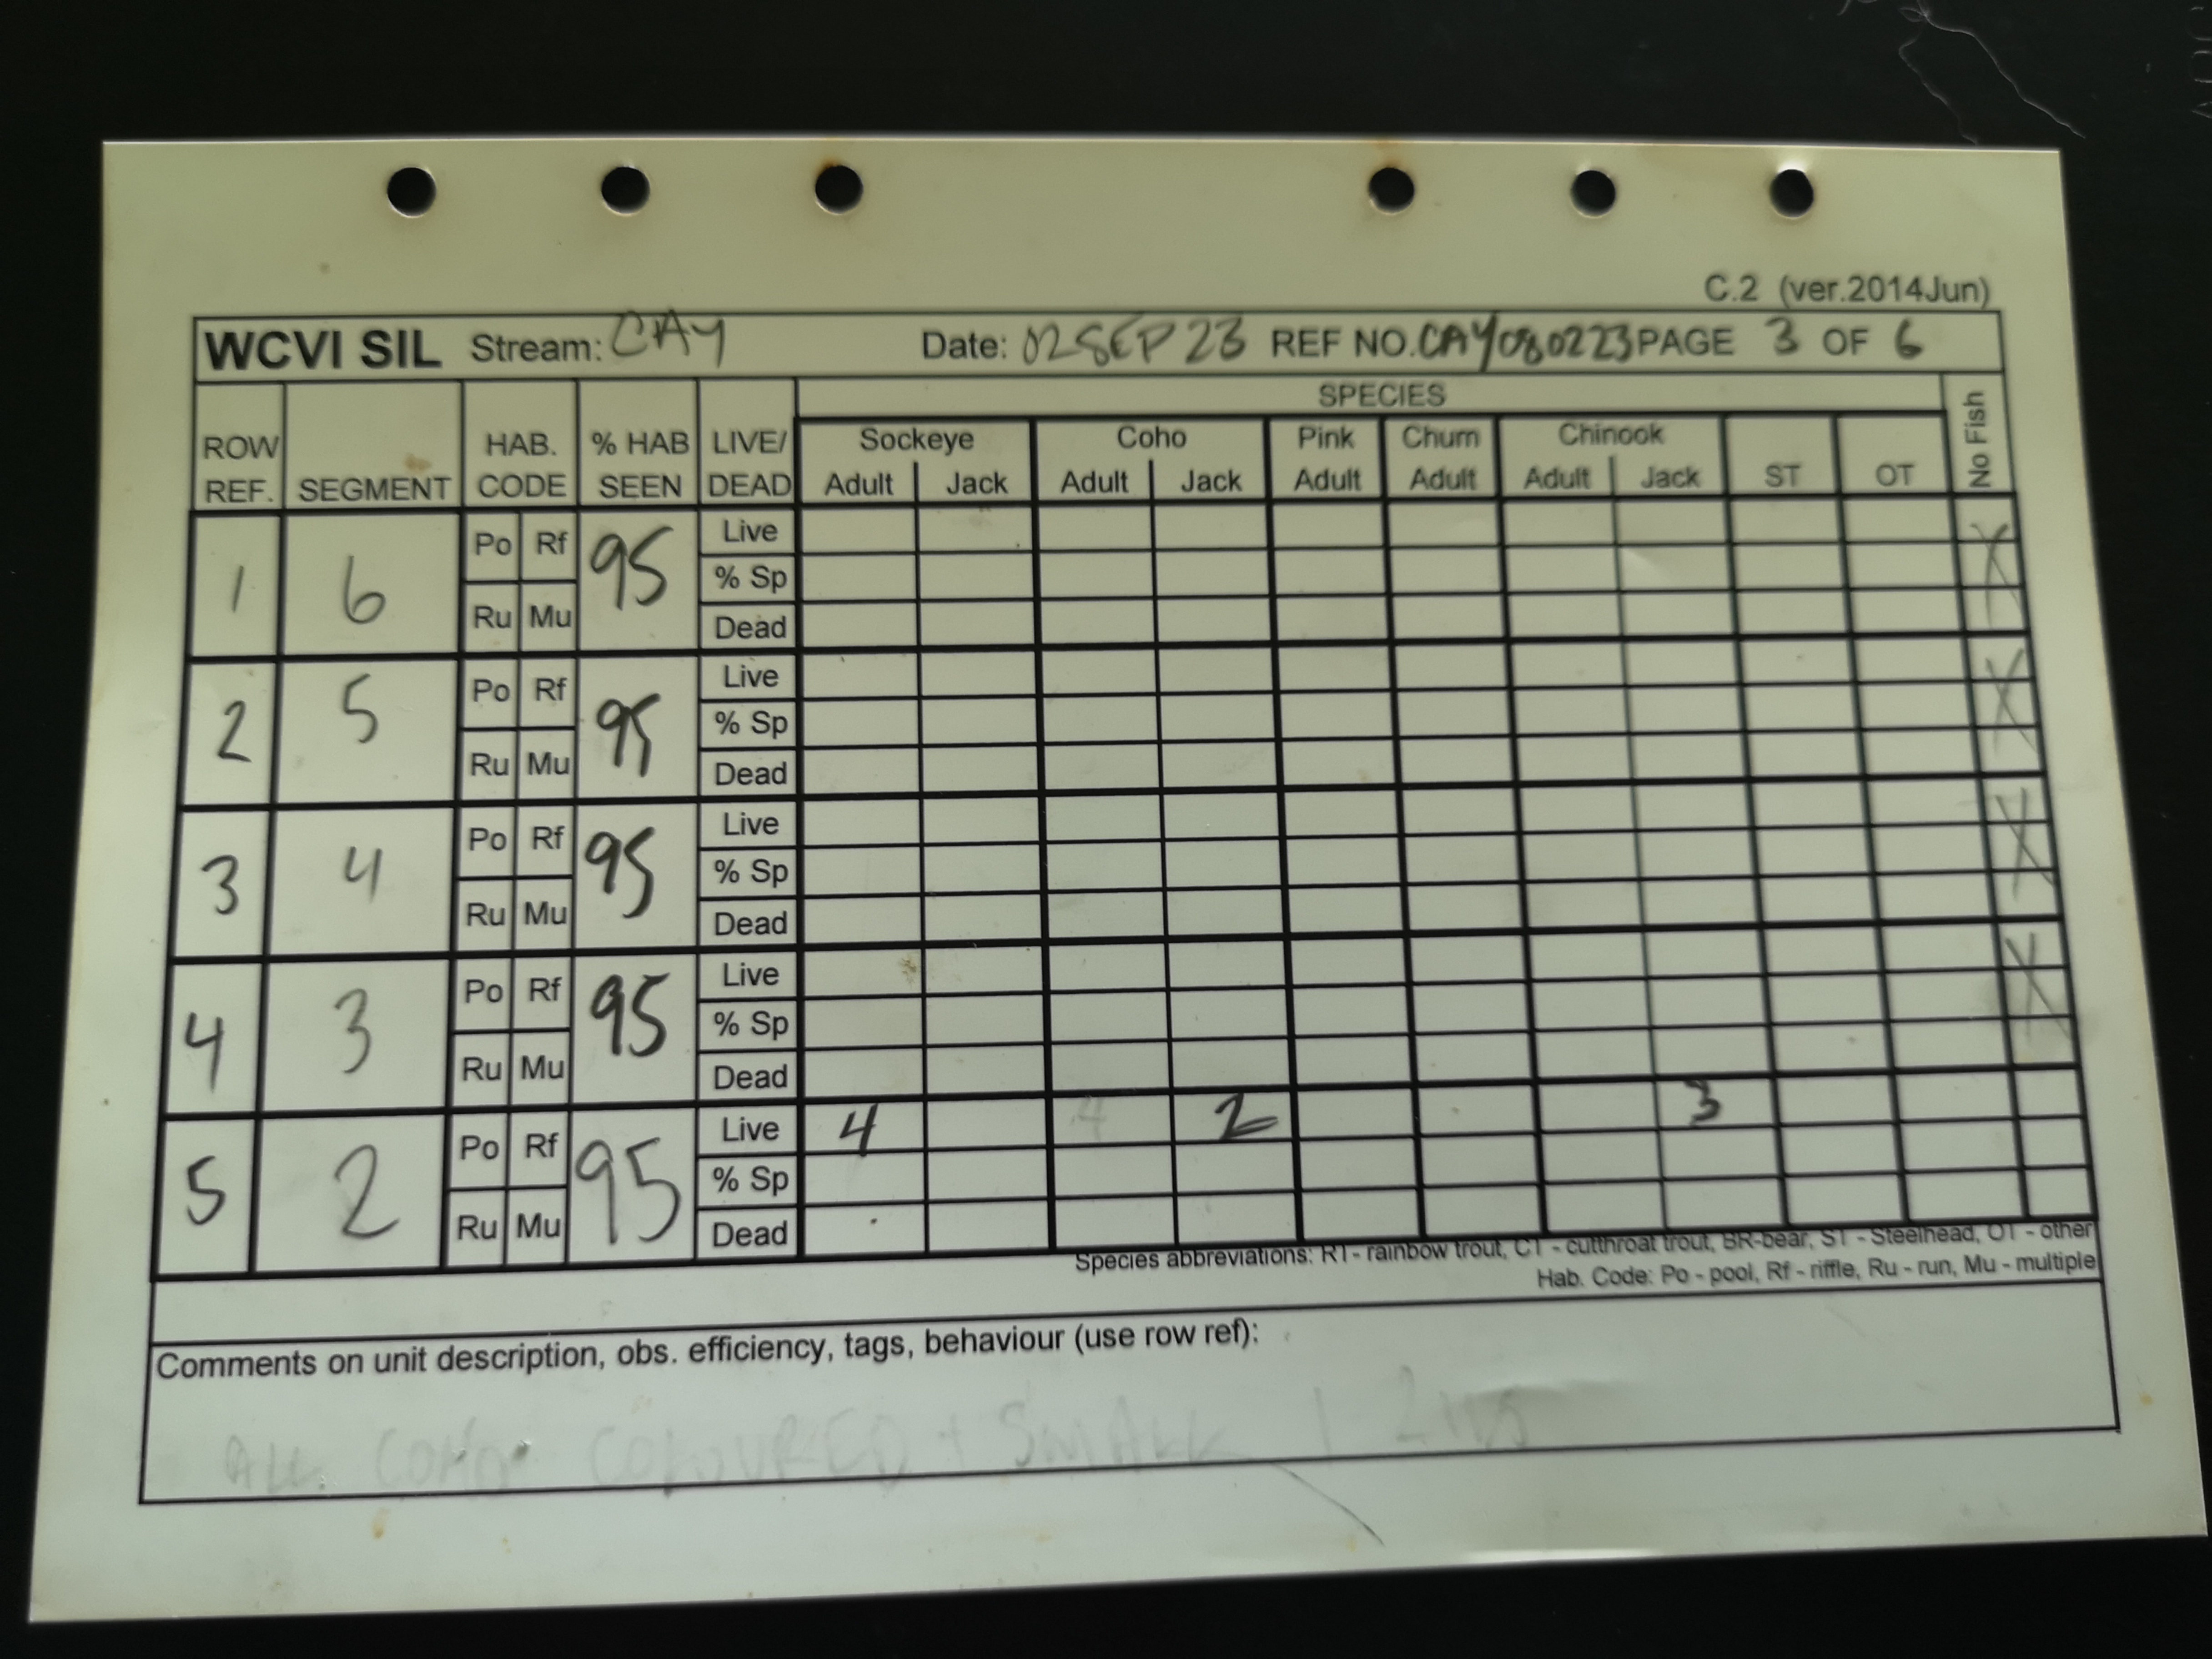 C.2 (ver.2014Jun)
WCVI SIL Stream: CAY Date: 02SEP23 REF NO. CAY080223 PAGE 3 OF 6
ROW REF. SEGMENT HAB. CODE % HAB SEEN LIVE/DEAD SPECIES No Fish
Sockeye Coho Pink Chum Chinook ST OT
Adult Jack Adult Jack Adult Adult Adult Jack
1 6 Po Rf 95 Live X
% Sp
Ru Mu Dead
2 5 Po Rf 95 Live X
% Sp
Ru Mu Dead
3 4 Po Rf 95 Live X
% Sp
Ru Mu Dead
4 3 Po Rf 95 Live X
% Sp
Ru Mu Dead
5 2 Po Rf 95 Live 4 2 3
% Sp
Ru Mu Dead
Species abbreviations: RT- rainbow trout, CT - cutthroat trout, BR-bear, ST - Steelhead, OT - other
Hab. Code: Po - pool, Rf - riffle, Ru - run, Mu - multiple
Comments on unit description, obs. efficiency, tags, behaviour (use row ref):
ALL COHO COLOURED + SMALL